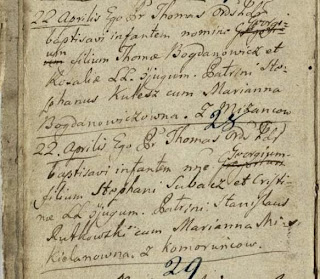 22 Aprilis Ego Fr Thomas Ords
baptisavi infantem nomini Georgi-
um filium Thomæ Bogdanowicz et
Rosaliæ LL. Cjugum. Patrini Ste-
phanus Kulesz cum Marianna
Bogdanowiczowna. Z
28
22. Aprilis Ego Fr Thomas Ords
baptisavi infantem nne Georgium
filium Stephani Subalcz et Cristi-
næ LL Cjugum. Patrini Stanislaus
Rutkowski cum Marianna
Z Komoruńcow.
29